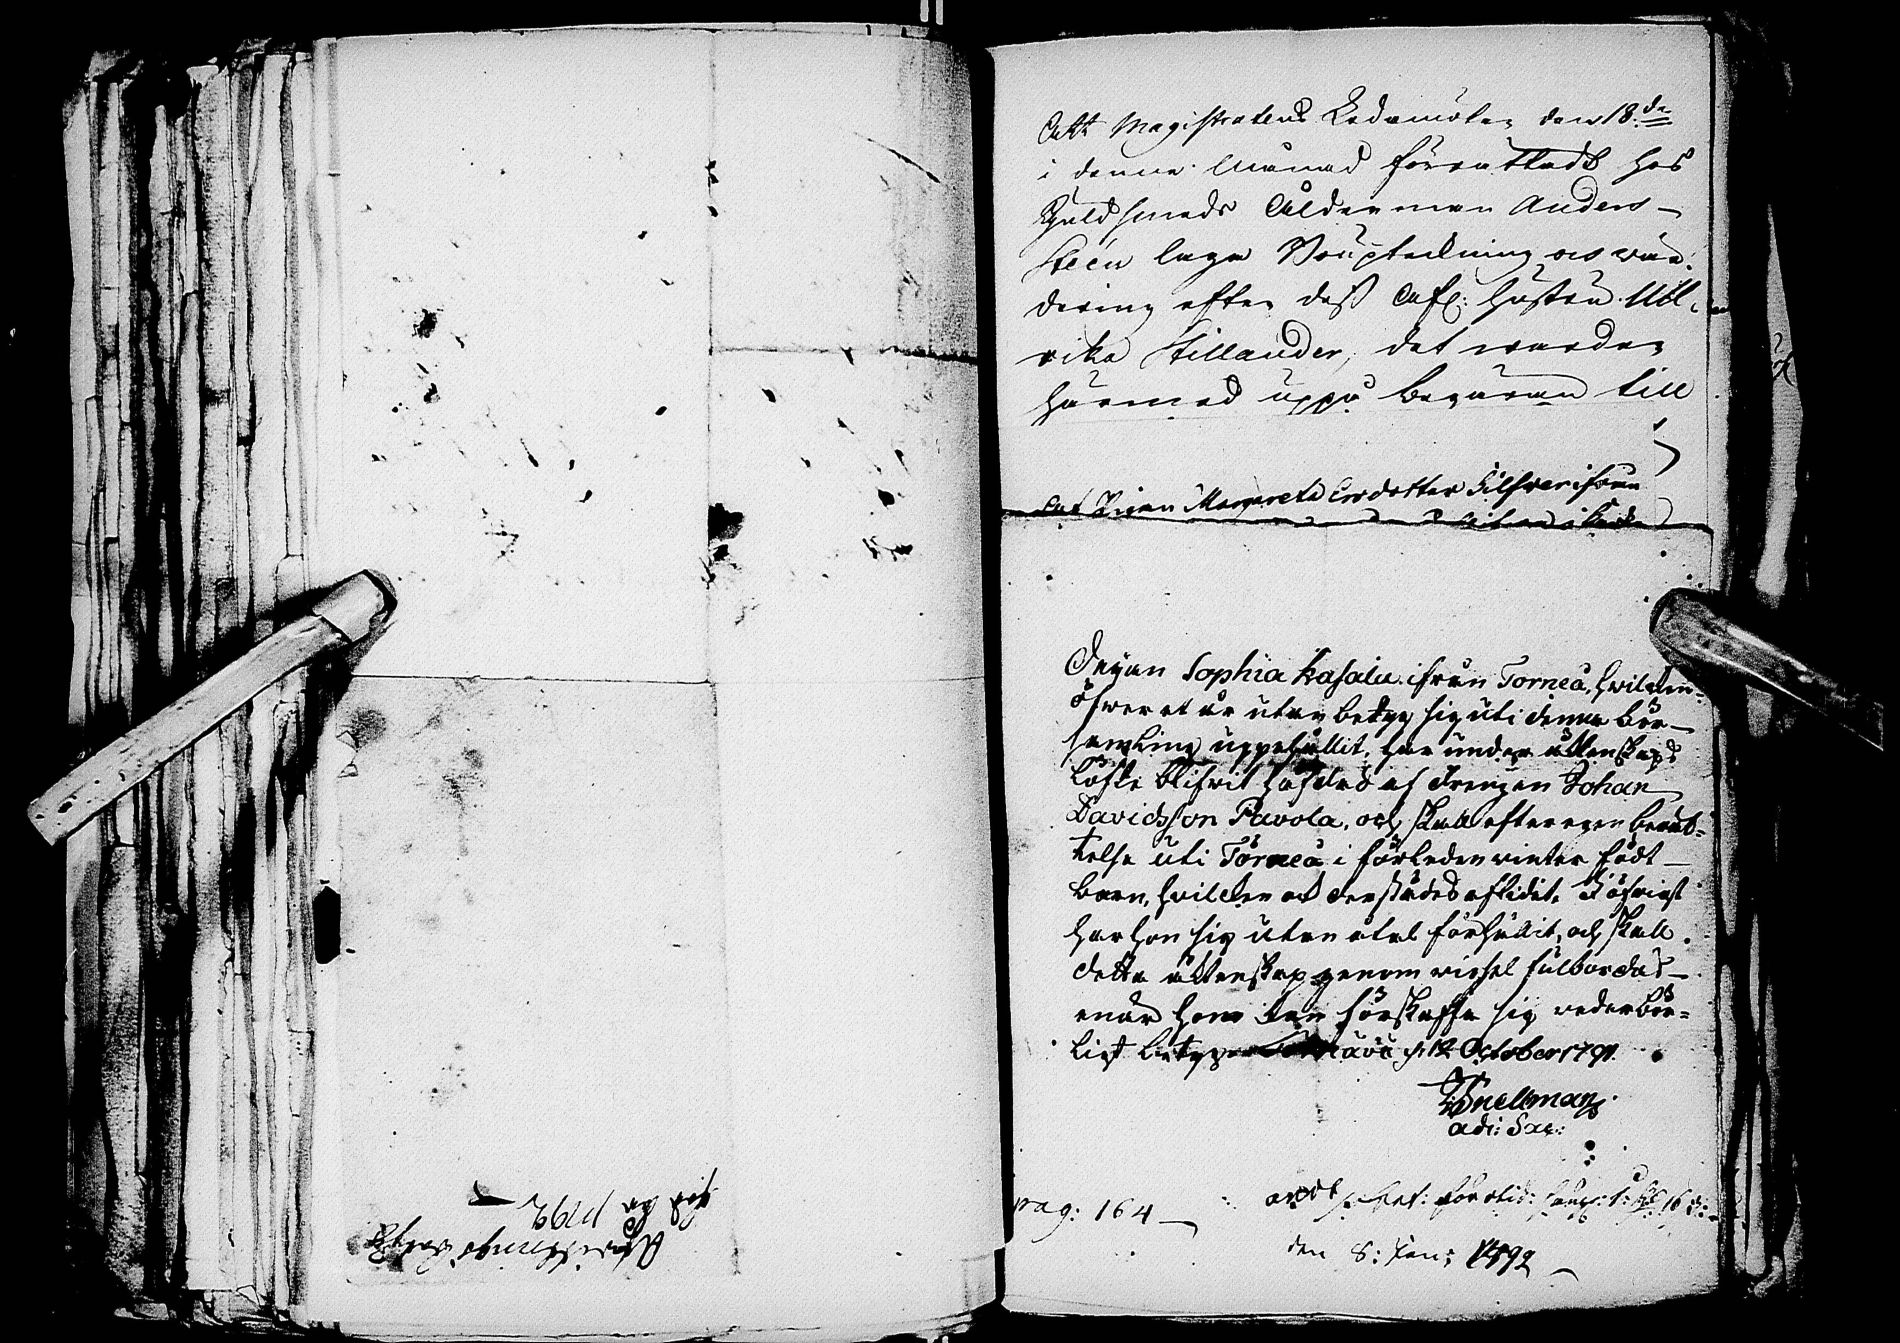 Att Magistratens Ledamöter den 18.de
i denne Månad förrättadt hos
Guldsmeds Ålderman Anders
Steen laga Boupteckning och vär-
dering efter dess Afl: hustru Ull-
rika Stillander, det warder
härmed uppå begäran till
Att Pigan Margareta Ersdotter ifrån
Pigan Sophia Kasala ifrån Torneå, hvilken
öfwer et år utan betyg sig uti denna För-
samling uppehållit, har under ächtenskaps
löfte blifwit häfdad af Drengen Johan
Davidsson Pavola, och skall efter egen berät-
telse uti Torneå i förleden winter födt
barn, hvilcket ock derstädes aflidit. I öfrigt
har hon sig utan åtal förhållit, och skall
detta ächtenskap genom vigsel fulbordas
enär hon kan förskaffa sig wederbör-
ligt betyg d: 12 October 1791.
Snellman
adj: Sac:
pag: 164
den 8: Jan: 1792
1792